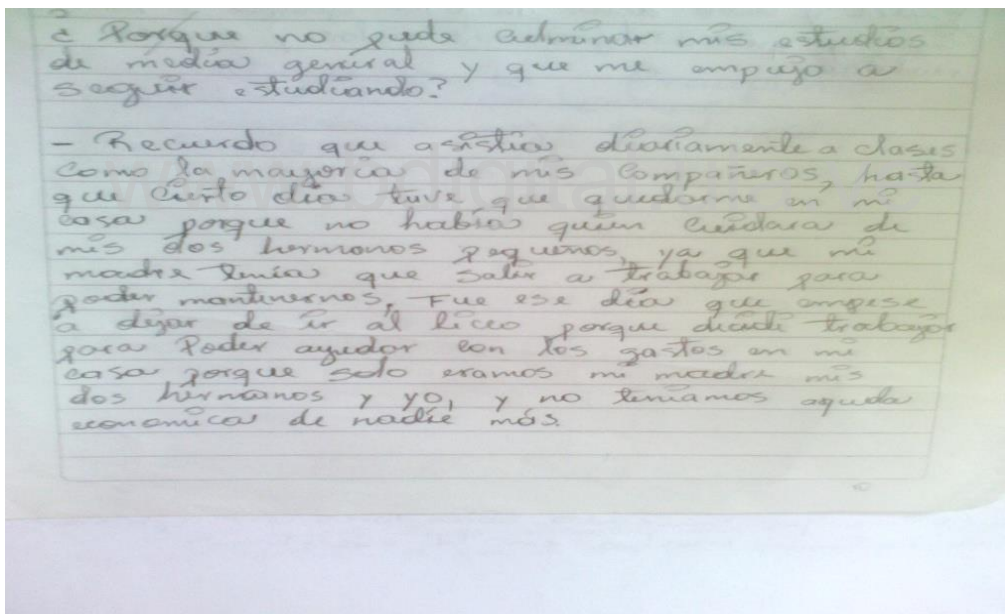 ¿Porque no pude culminar mis estudios
de media general y que me empujo a
seguir estudiando?
- Recuerdo que asistia diariamente a clases
como la mayoria de mis compañeros, hasta
que cierto dia tuve que quedarme en mi
casa porque no habia quien cuidara de
mis dos hermanos pequeños, ya que mi
madre tenia que salir a trabajar para
poder mantenernos, Fue ese dia que empese
a dejar de ir al liceo porque decidi trabajar
para Poder ayudar con los gastos en mi
casa porque solo eramos mi madre mis
dos hermanos y yo, y no teniamos ayuda
economica de nadie más.